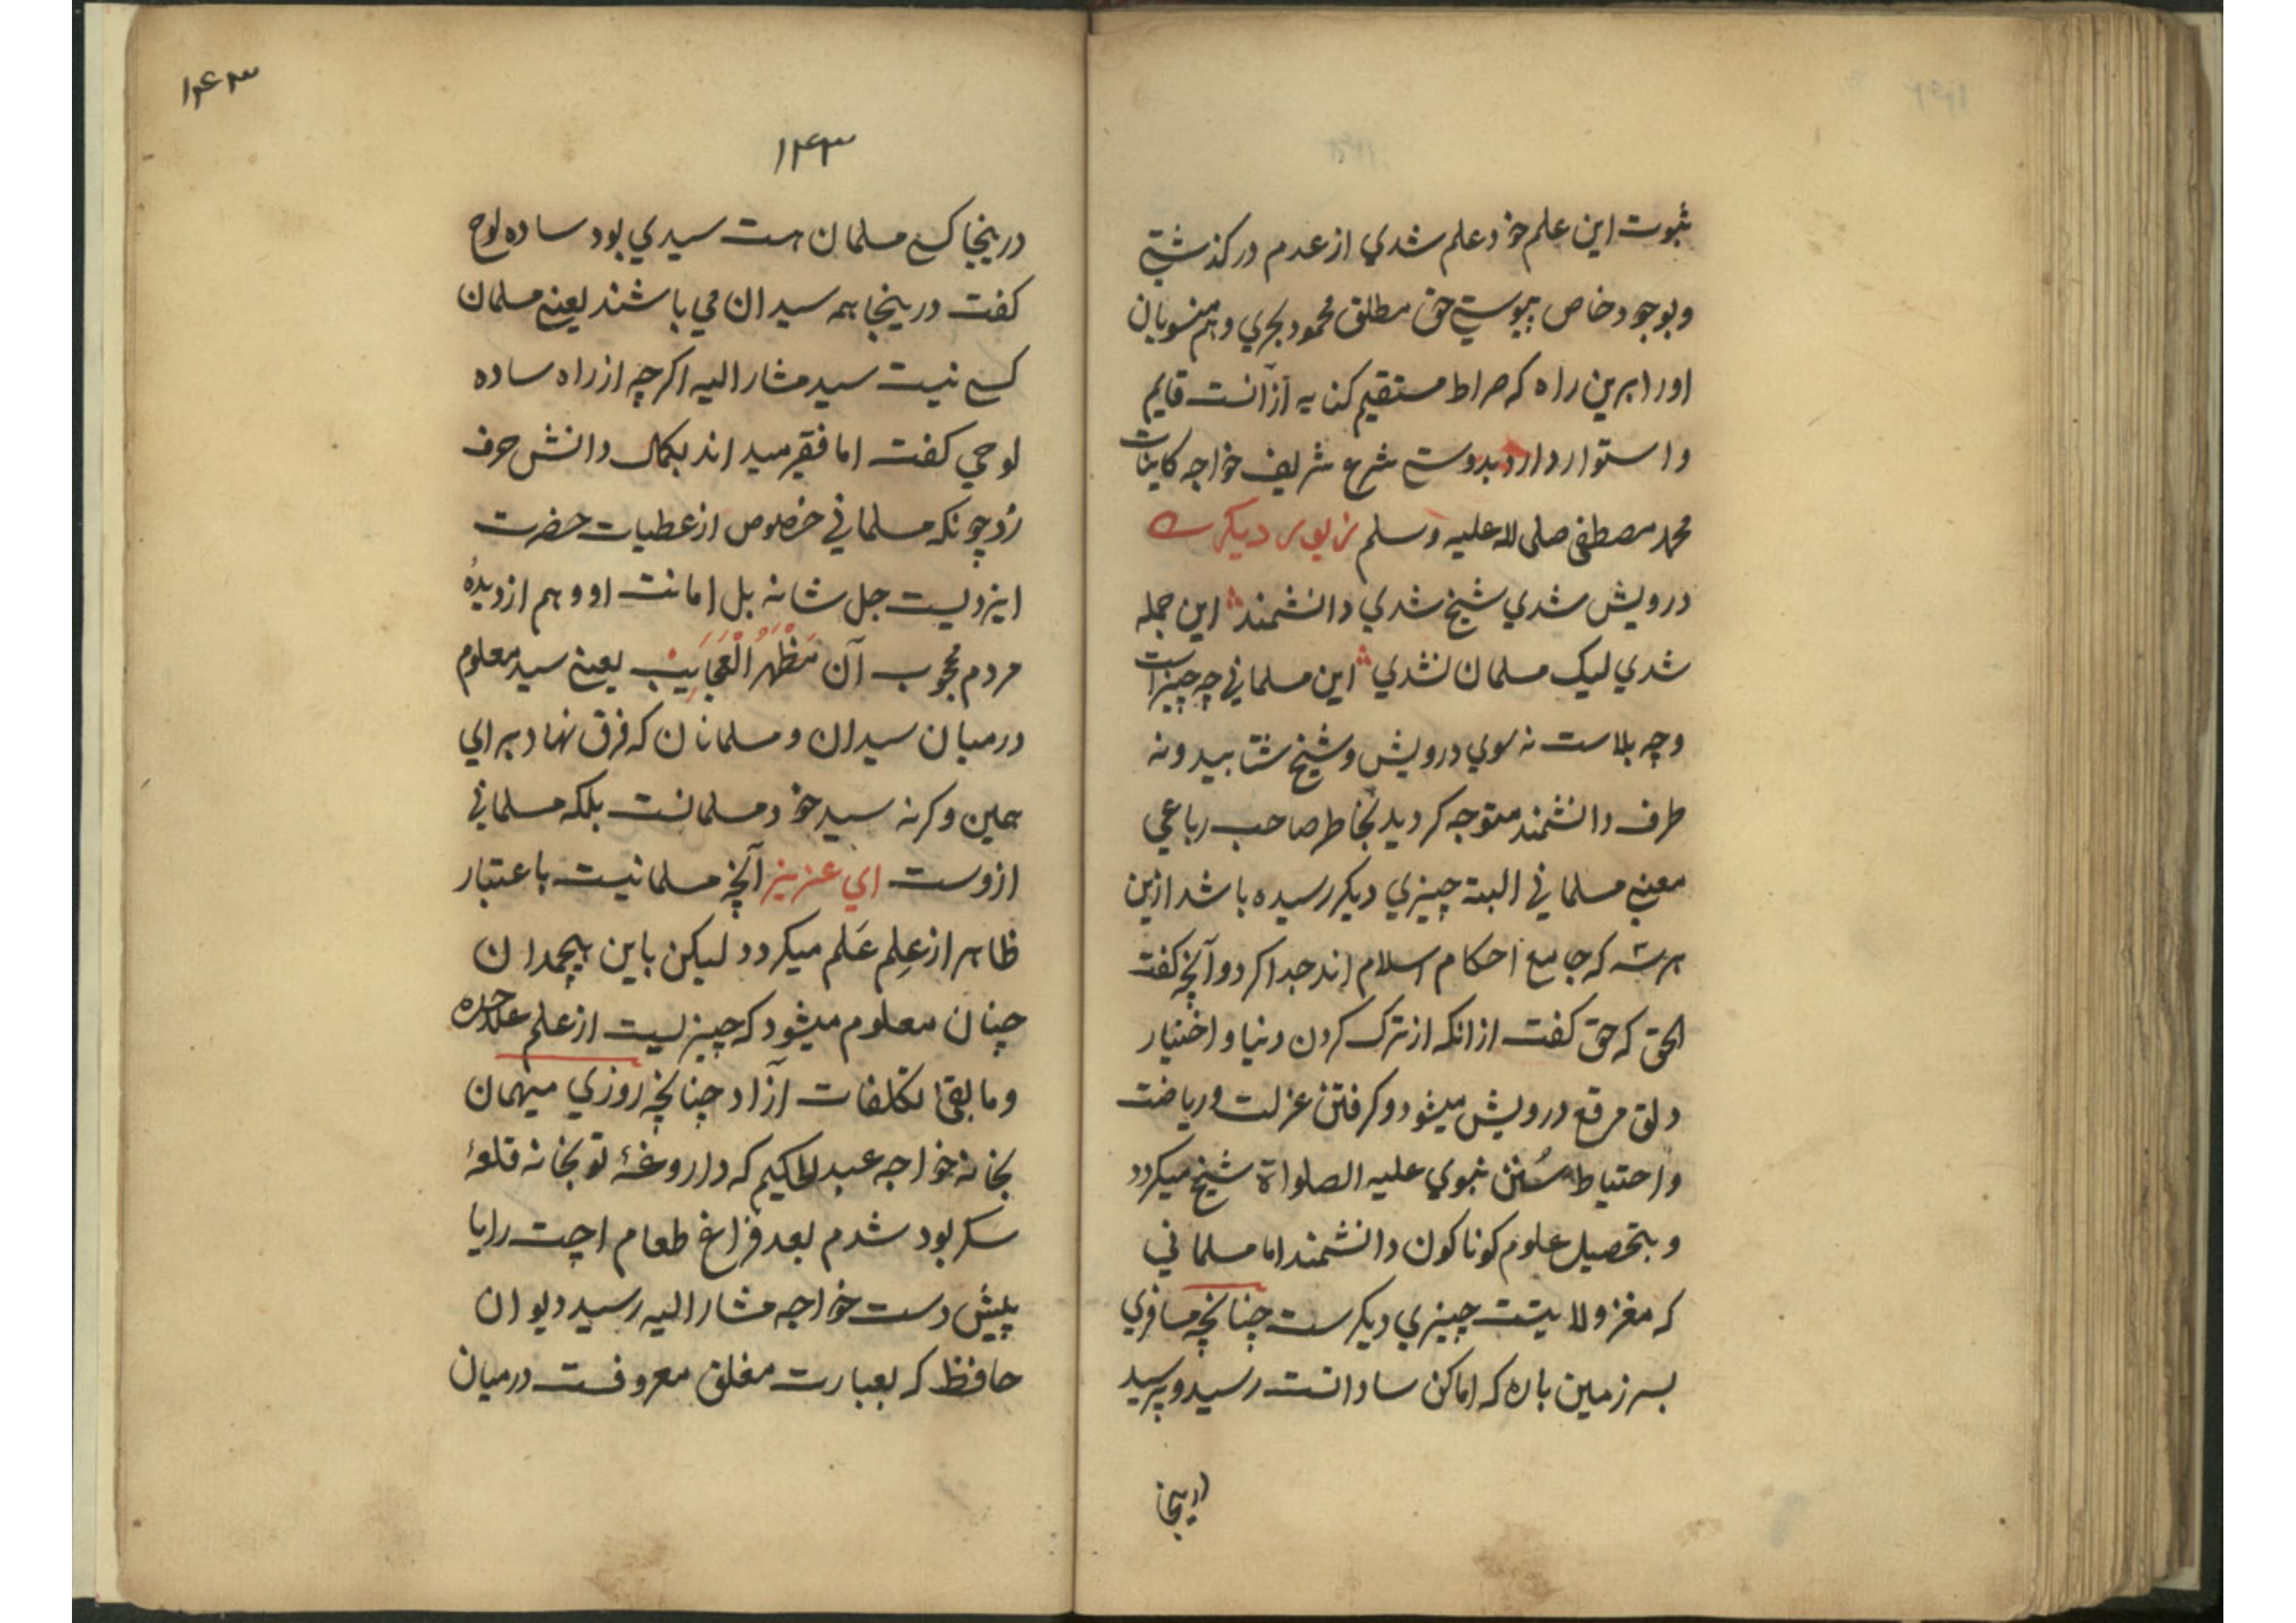 ثبوت این علم خود علم شدي از عدم در کذشتي
و بوجود خاص پیوستي حق مطلق محمود بحري و هم منسوبان
او را برین راه که صراط مستقیم کنایه از آنست قایم
و استوار دارد بدوستي شرع شریف خواجه کاینات
محمد مصطفی صلی الله علیه وسلم زیور دیکر
درویش شدي شیخ شدي دانشمند این جمله
شدي لیک مسلمان نشدي این مسلماني چه چیز است
و چه بلاست نه سوي درویش و شیخ شتابید و نه
طرف دانشمند متوجه کردید بخاطر صاحب رباعي
معني مسلماني البته چیزي دیکر رسیده باشد ازین
هر سه که جامع احکام اسلام اند جدا کرد و آنچه کفت
الحق که حق کفت از انکه از ترک کردن دنیا و اختیار
دلق مرقع درویش میشود و کرفتن عزلت و ریاضت
و احتیاط سُنن نبوي علیه الصلواة شیخ میکردد
و بتحصیل علوم کوناکون دانشمند اما مسلماني
که مغز ولایتت چیزي دیکرست چنانچه مسافري
بسر زمین باره که اماکن ساداتست رسید و پرسید
درینجا
۱۴۳
۱۴۳
درینجا کسي مسلمان هست سیدي بود ساده لوح
کفت درینجا همه سیدان مي باشند یعني مسلمان
کسي نیست سید مشار الیه اکرچه از راه ساده
لوحي کفت اما فقیر میداند بکمال دانش حرف
زد چونکه مسلماني خصوص از عطیات حضرت
ایزدیست جل شانه بل امانت او و هم از دیدهٔ
مردم محجوب آن مَظْهَرُ الْعَجَایِبْ یعني سید معلوم
درمیان سیدان و مسلمانان که فرق نهاد برای
همین وکرنه سید خود مسلمانست بلکه مسلماني
ازوست اي عزیز آنچه مسلمانیست باعتبار
ظاهر از عِلم عَلم میکردد لیکن باین هیچمدان
چنان معلوم میشود که چیزیست از علم علاحده
و مابقی تکلفات آزاد چنانچه روزي میهمان
بخانه خواجه عبد الحکیم که داروغهٔ توبخانه قلعهٔ
سکر بود شدم بعد فراغ طعام اچت رایا
پیش دست خواجه مشار الیه رسید دیوان
حافظ که بعبارت مغلق معروفست درمیان